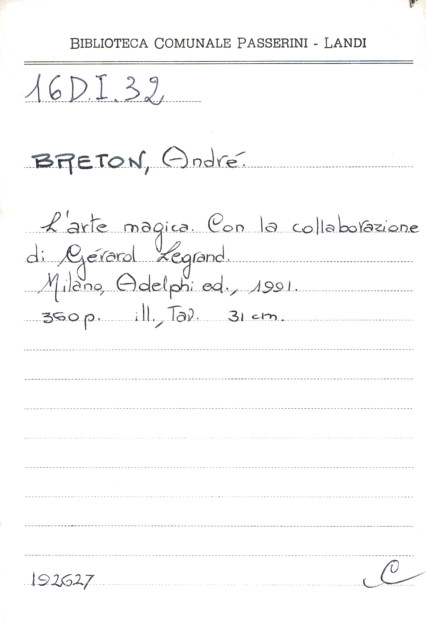 BIBLIOTECA COMUNALE PASSERINI - LANDI
16D.I.32
BRETON, André.
L'arte magica. Con la collaborazione
di Gérard Legrand.
Milano, Adelphi ed., 1991.
360p. ill., Tav. 31 cm.
192627
C